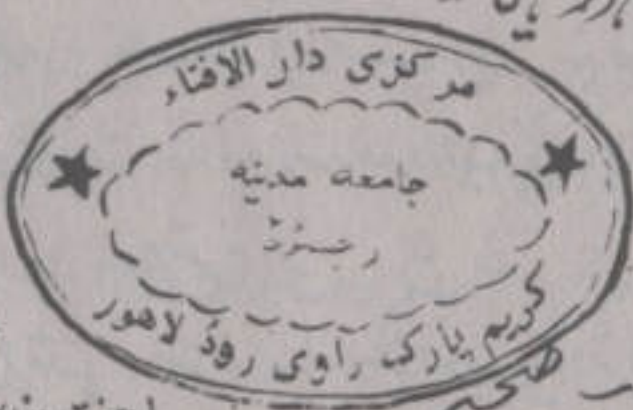 مرکزی دار الافتاء
جامعہ مدنیہ
رجسٹرڈ
کریم پارک راوی روڈ لاهور
صحیح